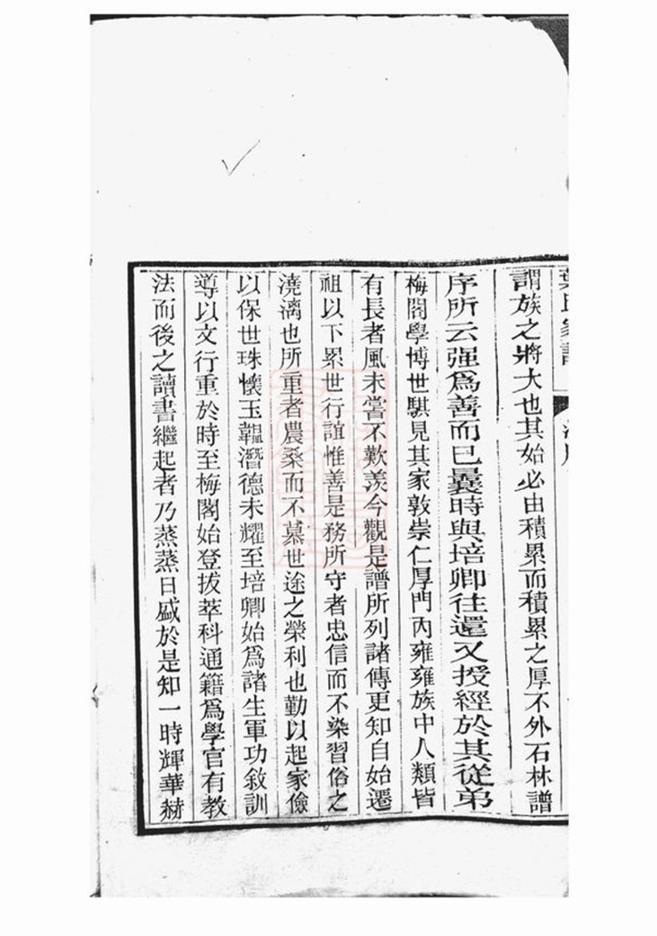 葉氏家譜
謂族之將大也其始必由積累而積累之厚不外石林譜
序所云强爲善而已曩時與培卿往還又授經於其從弟
梅閣學博世騏見其家敦崇仁厚門内雍雍族中人類皆
有長者風未嘗不歎羨今觀是譜所列諸傳更知自始遷
祖以下累世行誼惟善是務所守者忠信而不染習俗之
澆漓也所重者農桑而不慕世途之榮利也勤以起家儉
以保世珠懷玉韞潛德未耀至培卿始爲諸生軍功敘訓
導以文行重於時至梅閣始登拔萃科通籍爲學官有教
法而後之讀書繼起者乃蒸蒸日盛於是知一時輝華赫